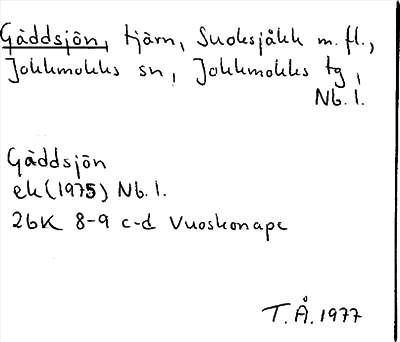 Gäddsjön, tjärn, Suoksjåkk m.fl.,
Jokkmokks sn, Jokkmokks tg,
Nb. l.
Gäddsjön
ek (1975) Nb. l.
26K 8-9 c-d Vuoskonape
T.Å. 1977